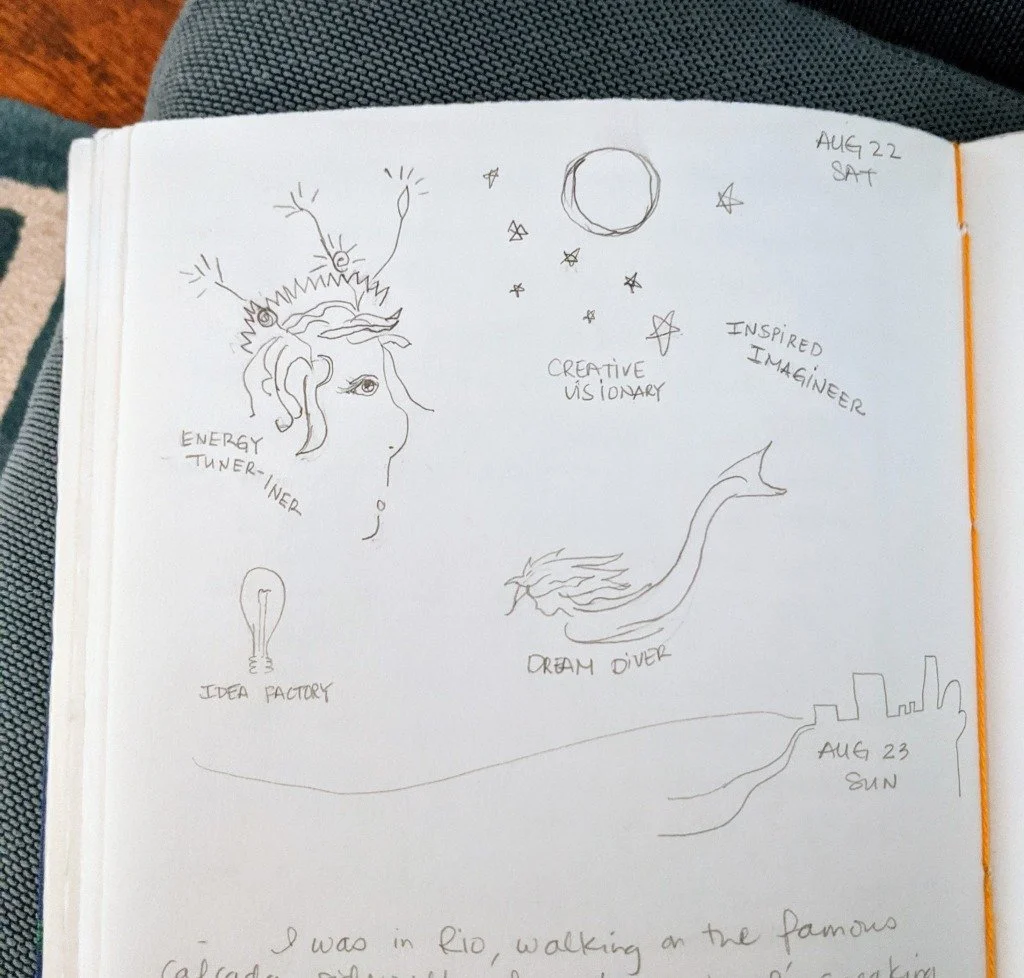 AUG 22
SAT
CREATIVE
VISIONARY
INSPIRED
IMAGINEER
ENERGY
TUNER-INER
DREAM DIVER
IDEA FACTORY
AUG 23
SUN
I was in Rio, walking on the famous